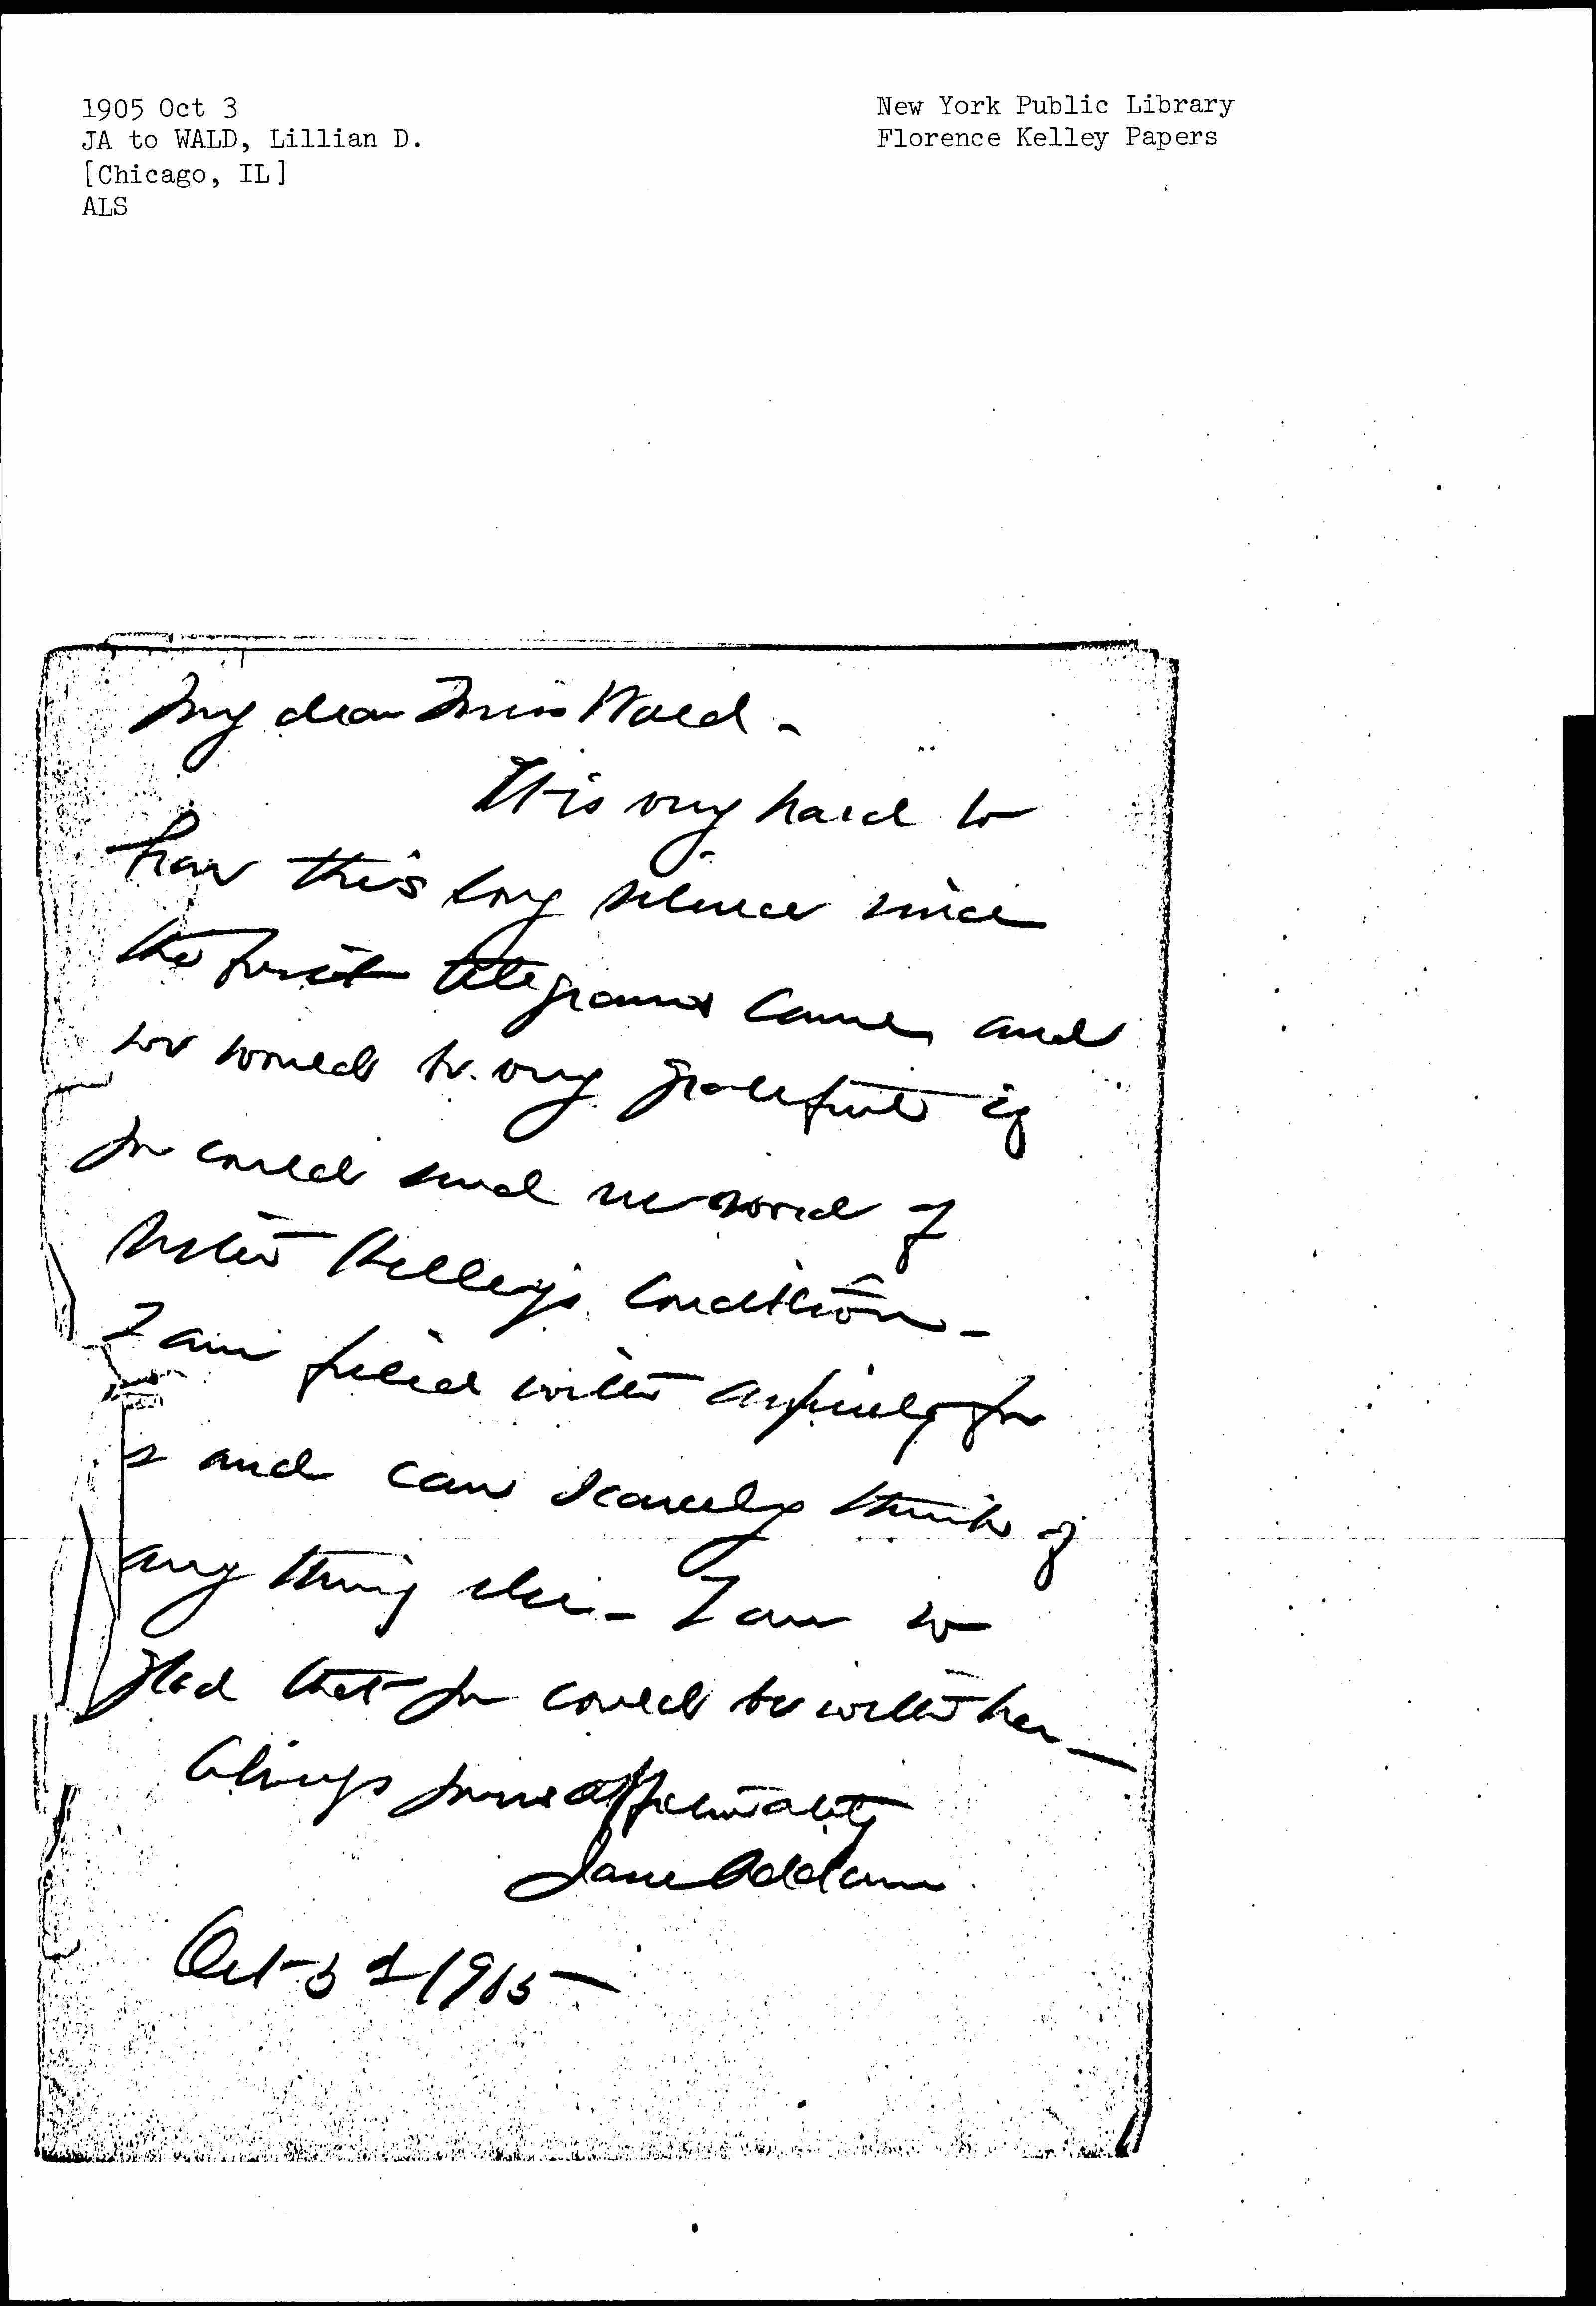 1905 Oct 3
JA to WALD, Lillian D.
[Chicago, IL]
ALS
New York Public Library
Florence Kelley Papers
My dear Miss Wald -
It is very hard to
have this long silence since
the first telegrams came and
we would be very grateful if
you could send us word of
Sister Kelley's condition -
I am filled with anxiety for
and can scarcely think of
any thing else - I am so
glad that you could be with her -
Always yours affectionately
Jane Addams
Oct 3d 1905